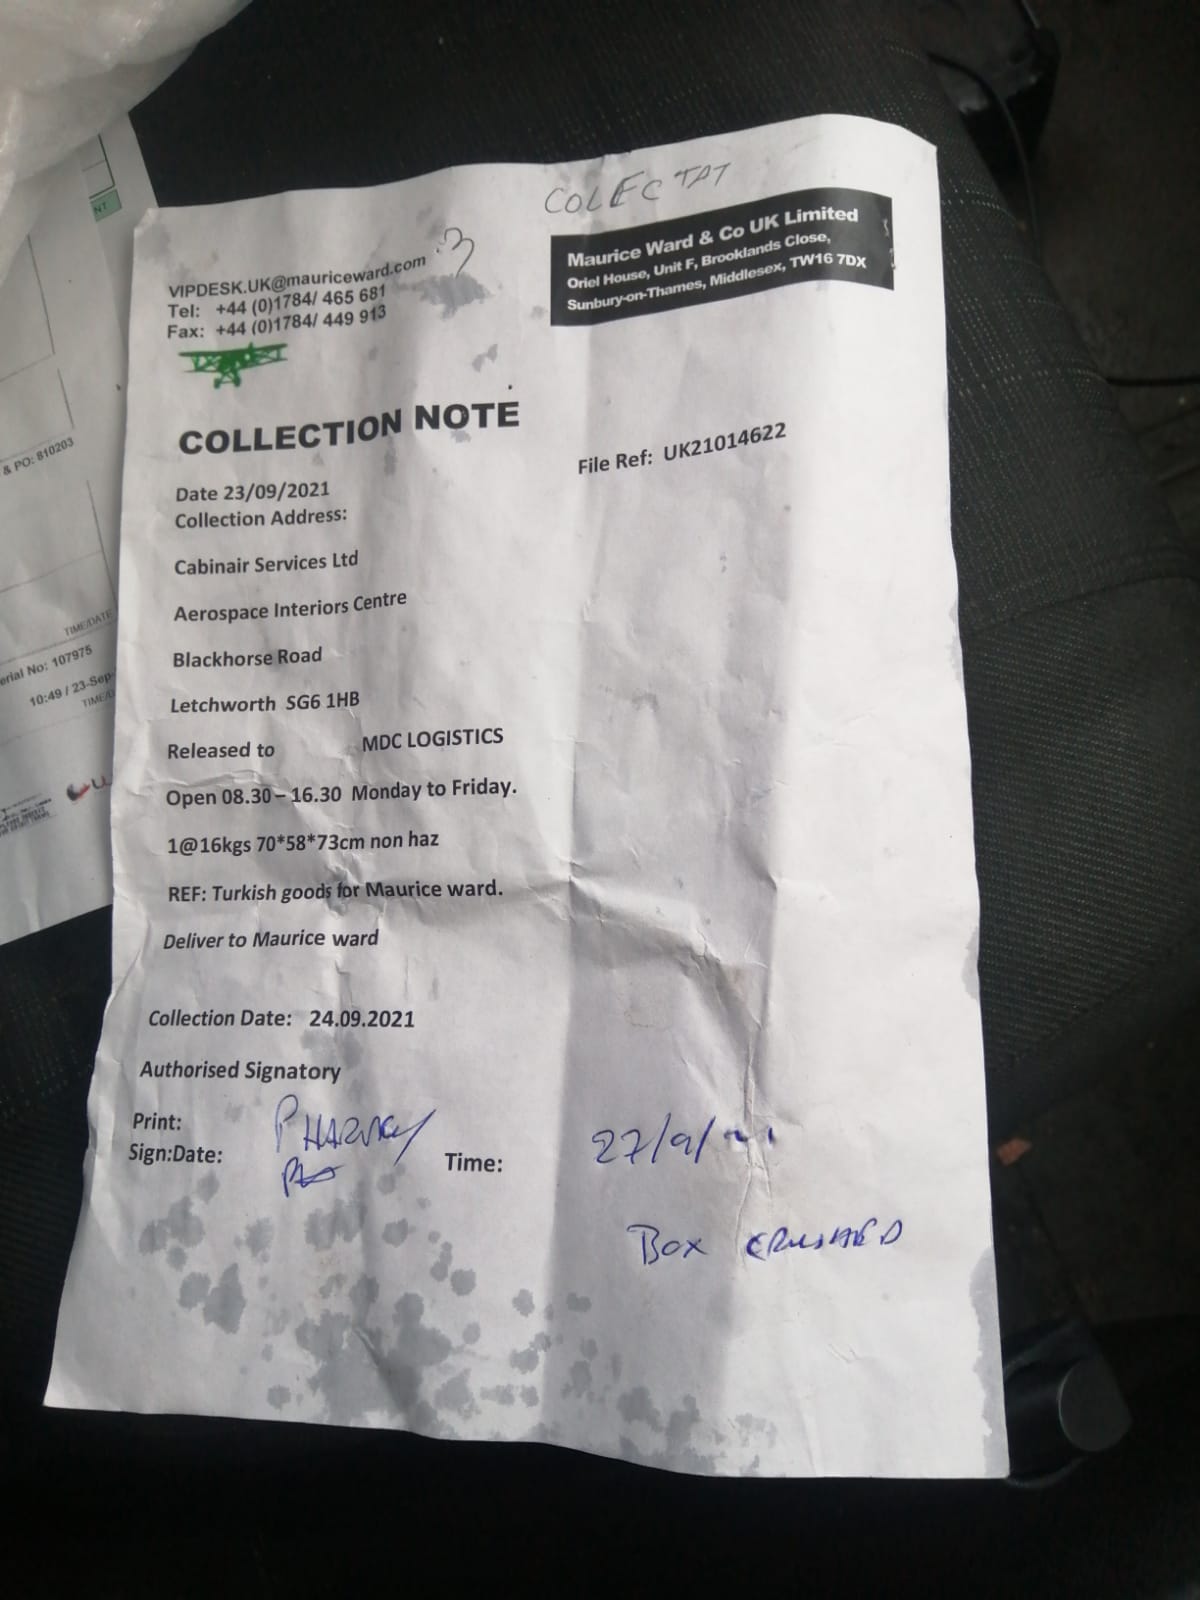 COLECTAT
3
VIPDESK.UK@mauriceward.com
Tel: +44 (0)1784/ 465 681
Fax: +44 (0)1784/ 449 913
Maurice Ward & Co UK Limited
Oriel House, Unit F, Brooklands Close,
Sunbury-on-Thames, Middlesex, TW16 7DX
COLLECTION NOTE
File Ref: UK21014622
Date 23/09/2021
Collection Address:
Cabinair Services Ltd
Aerospace Interiors Centre
Blackhorse Road
Letchworth SG6 1HB
Released to MDC LOGISTICS
Open 08.30 – 16.30 Monday to Friday.
1@16kgs 70*58*73cm non haz
REF: Turkish goods for Maurice ward.
Deliver to Maurice ward
Collection Date: 24.09.2021
Authorised Signatory
Print: P HARVEY
Sign:Date: Time: 27/9/21
BOX CRUSHED
NT
& PO: 810203
TIME/DATE
erial No: 107975
10:49 / 23-Sep-
TIME/D